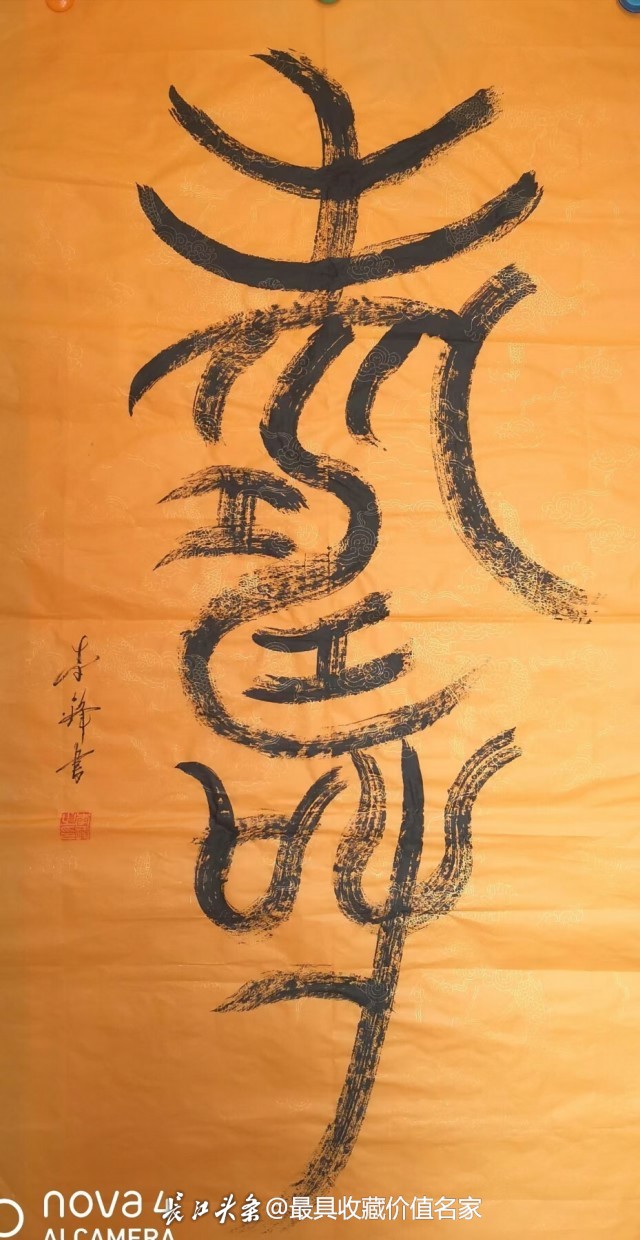 壽
李鋒書
nova 4
AI CAMERA
长江头条@最具收藏价值名家